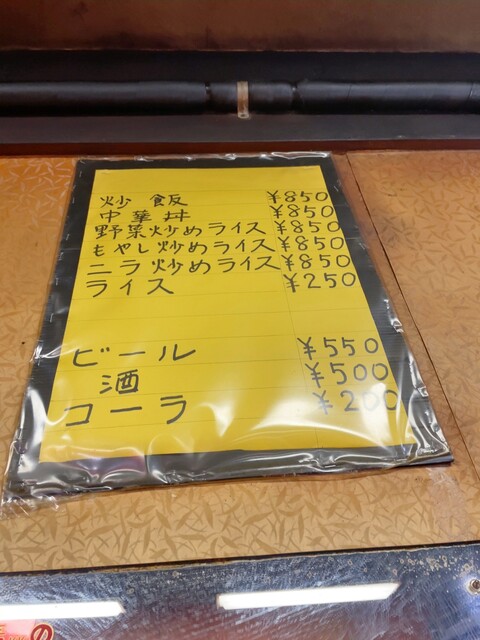 炒飯 ¥850
中華丼 ¥850
野菜炒めライス ¥850
もやし炒めライス ¥850
ニラ炒めライス ¥850
ライス ¥250
ビール ¥550
酒 ¥500
コーラ ¥200
の